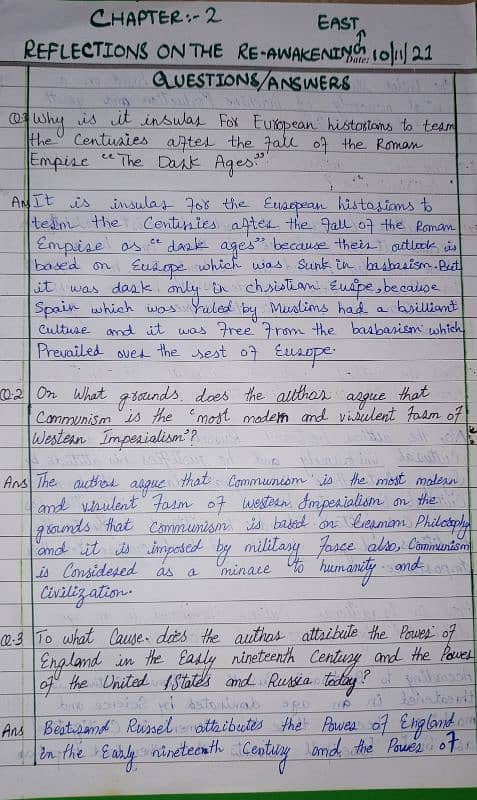 CHAPTER:- 2
EAST
REFLECTIONS ON THE RE-AWAKENING Date: 10/11/21
QUESTIONS/ANSWERS
Q.1 Why is it insular For European historians to team
the Centuries after the fall of the Roman
Empire "The Dark Ages?"
Ans It is insular for the European historians to
team the Centuries after the fall of the Roman
Empire as "dark ages" because their outlook is
based on Europe which was sunk in barbarism. But
it was dark only in christian Europe, because
Spain which was ruled by Muslims had a brilliant
culture and it was free from the barbarism which
Prevailed over the rest of Europe.
Q.2 On What grounds does the author argue that
Communism is the "most modern and virulent form of
Western Imperialism"?
Ans The author argue that Communism is the most modern
and virulent form of western Imperialism on the
grounds that communism is based on German Philosophy
and it is imposed by military force also, Communism
is Considered as a minace to humanity and
Civilization.
Q.3 To what Cause does the author attribute the Power of
England in the Early nineteenth Century and the Power
of the United States and Russia today?
Ans Bertrand Russel attributes the Power of England
in the Early nineteenth Century and the Power of